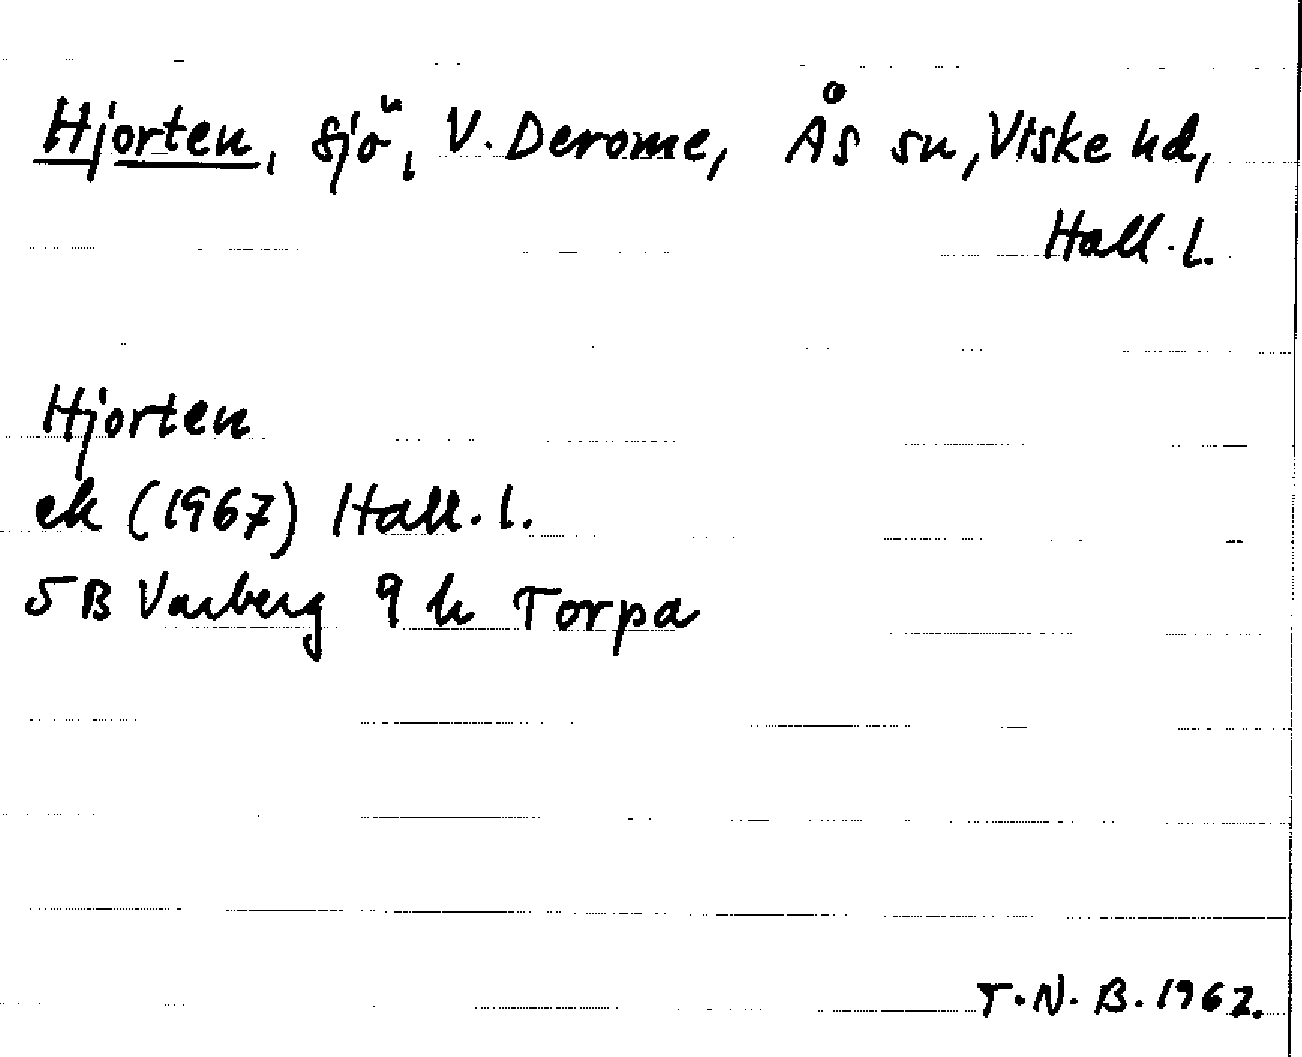 Hjorten, sjö, V. Derome, Ås sn, Viske hd,
Hall. l.
Hjorten
ek (1967) Hall. l.
5B Varberg 9 h Torpa
T. N. B. 1967.